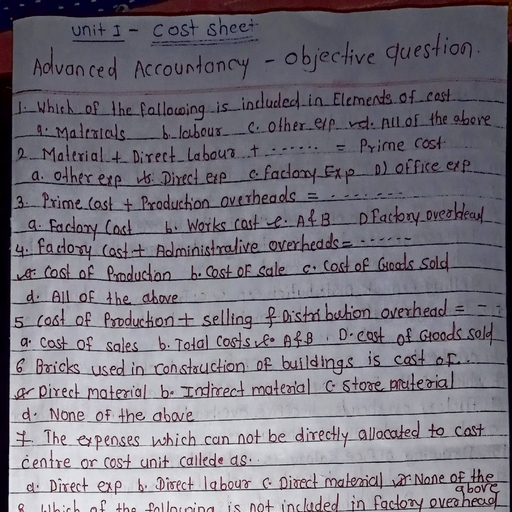 Unit I - Cost sheet
Advanced Accountancy - objective question.
1. Which of the following is included in Elements of cost
a. Materials b. labour c. other exp d. All of the above
2. Material + Direct Labour + ...... = Prime cost
a. other exp b. Direct exp c. factory Exp D) office exp
3. Prime Cost + Production overheads = ......
a. Factory Cost b. Works cost c. A & B D Factory overhead
4. factory cost + Administrative overheads = ......
a. Cost of Production b. Cost of Sale c. Cost of Goods Sold
d. All of the above
5 Cost of Production + selling & Distribution overhead = - -
a. Cost of sales b. Total Costs c. A & B. D. cost of Goods sold
6 Bricks used in construction of buildings is cast of...
a Direct material b. Indirect material c. Store material
d. None of the above
7. The expenses which can not be directly allocated to cost
centre or cost unit called as.
a. Direct exp b. Direct labour c. Direct material d. None of the
above
8. Which of the following is not included in factory overhead